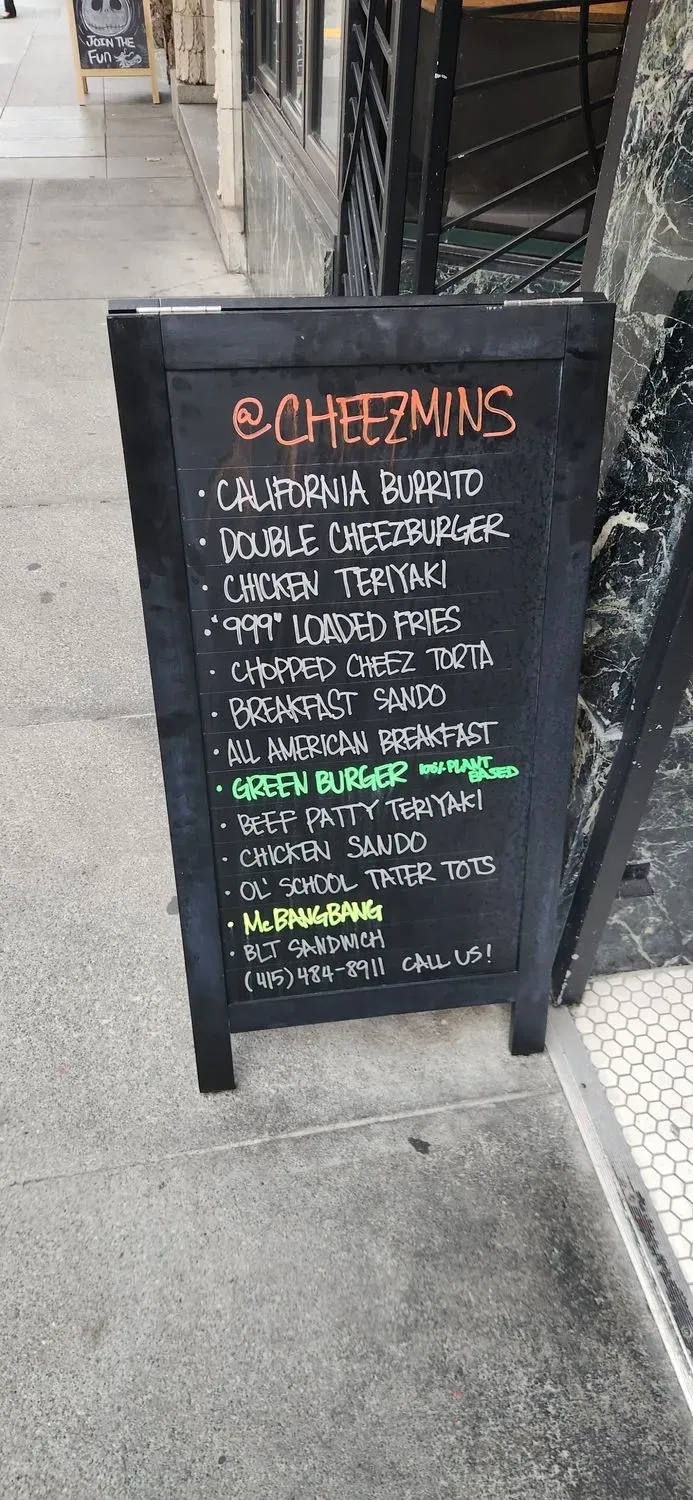 JOIN THE
FUN
@CHEEZMINS
• CALIFORNIA BURRITO
• DOUBLE CHEEZBURGER
• CHICKEN TERIYAKI
• "999" LOADED FRIES
• CHOPPED CHEEZ TORTA
• BREAKFAST SANDO
• ALL AMERICAN BREAKFAST
• GREEN BURGER 100% PLANT BASED
• BEEF PATTY TERIYAKI
• CHICKEN SANDO
• OL' SCHOOL TATER TOTS
• McBANGBANG
• BLT SANDWICH
(415) 484-8911 CALL US!